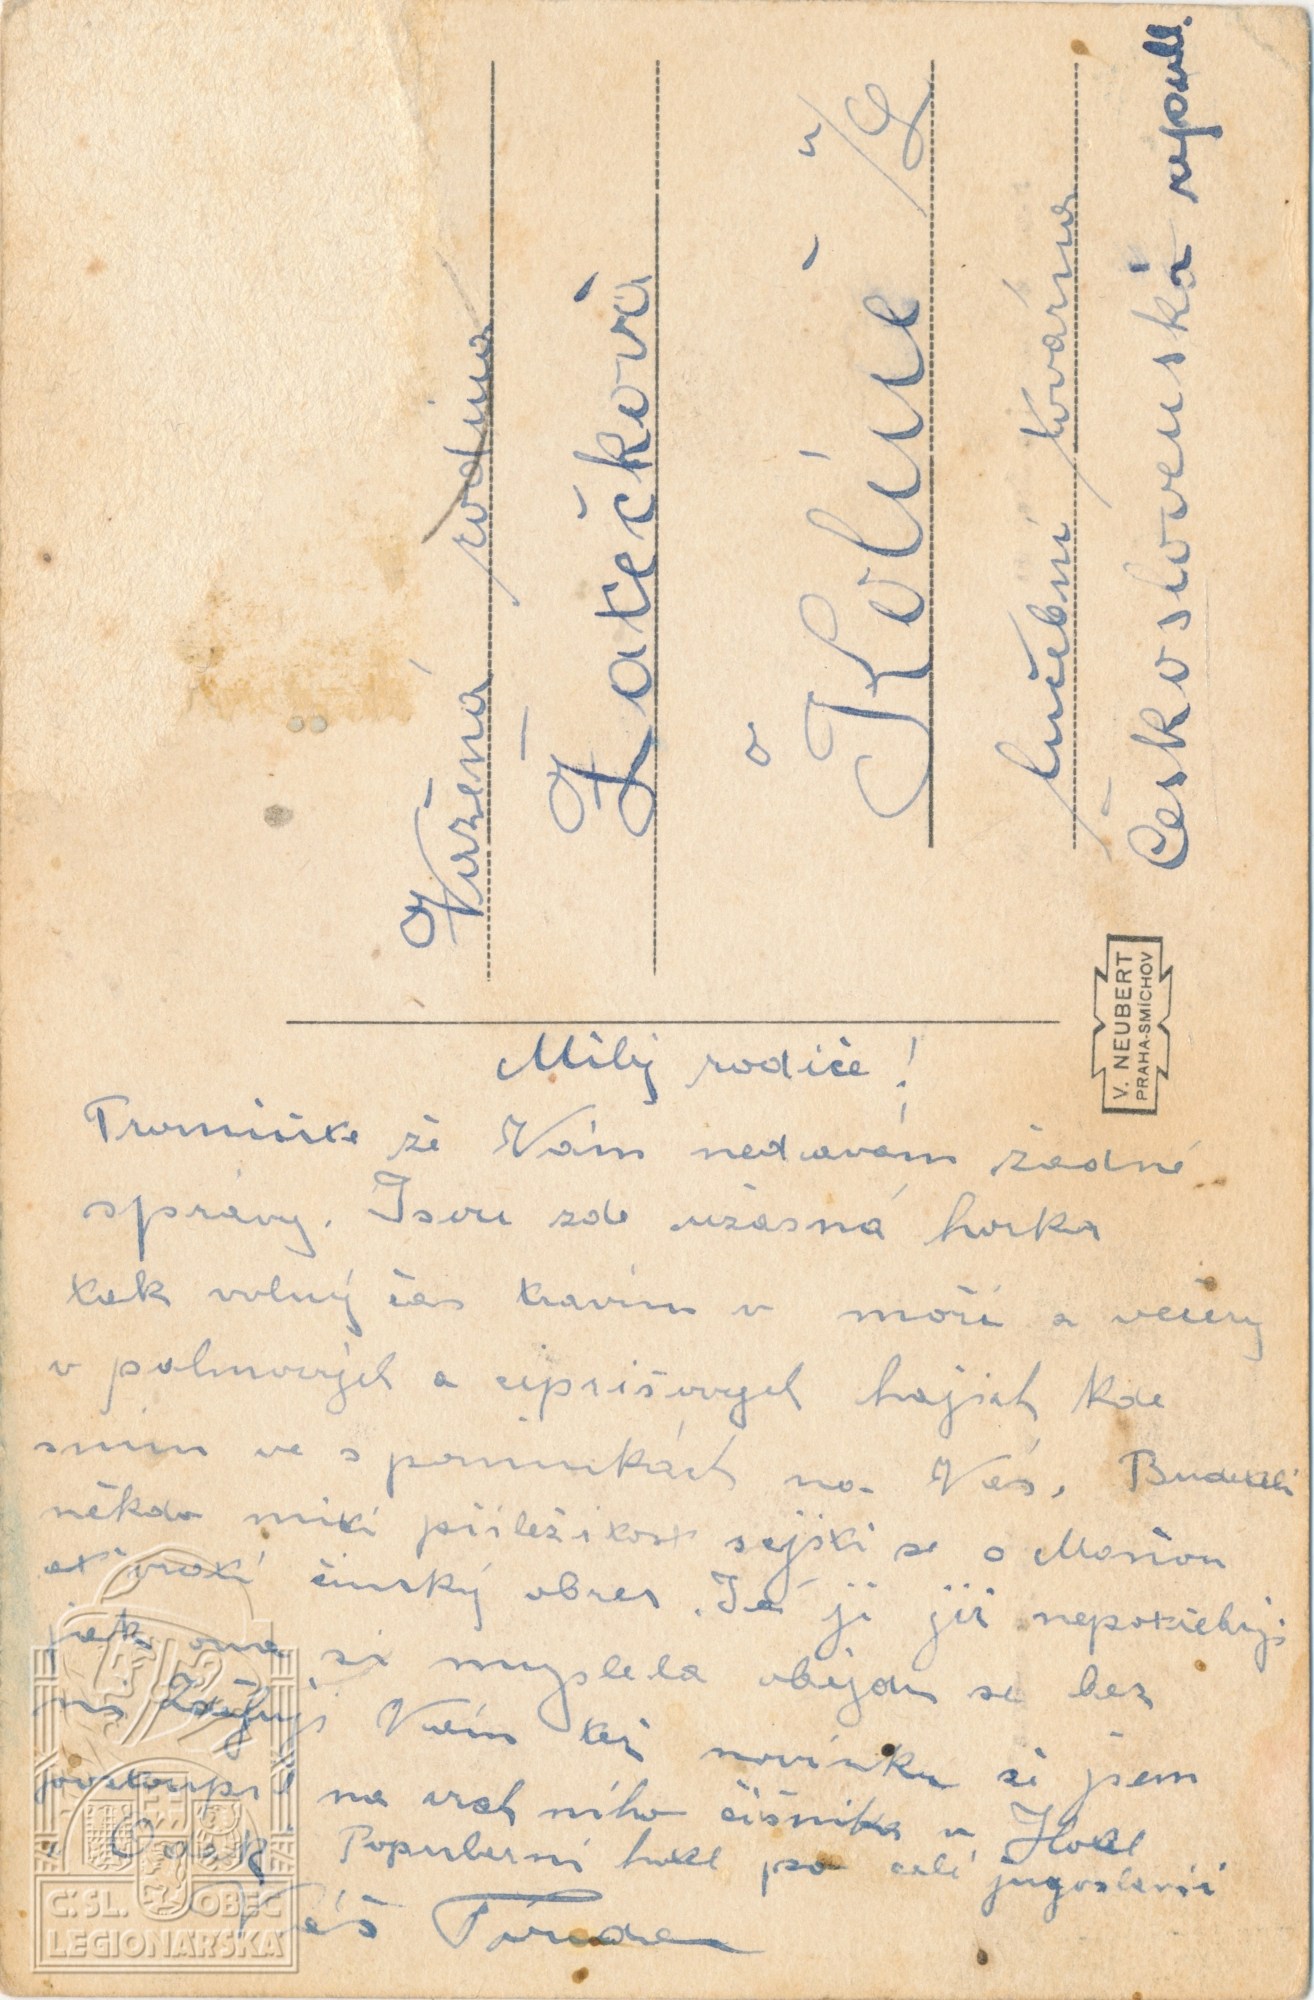 Vážená rodina
Zatečkovi
v Kolíně n/L
lučební továrna
Československá republ.
V. NEUBERT
PRAHA-SMÍCHOV
Milý rodiče!
Promiňte že Vám nedavám žadné
správy. Jsou zde užasná horka
tak volný čas travím v moři a večery
v palmových a ciprišových hajich kde
sním ve spominkách na Vás. Budeteli
někdo miti přiležitost sejiti se s Mařou
at vrati činský obraz. Já ji již nepotřebuji
jak ona si myslela obejdu se bez
ní. Vám též novinku že jsem
postoupil na vrchního čišnika v Hotel
Popularni hotel po celé jugoslavii
Váš
Č.SL. OBEC
LEGIONÁŘSKÁ